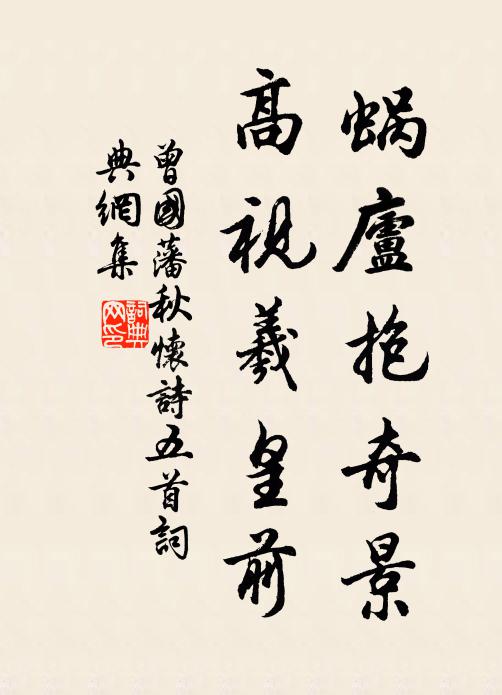 蜗廬抱奇景
高視羲皇前
曾國藩秋懷詩五首詞
典網集
詞典网印